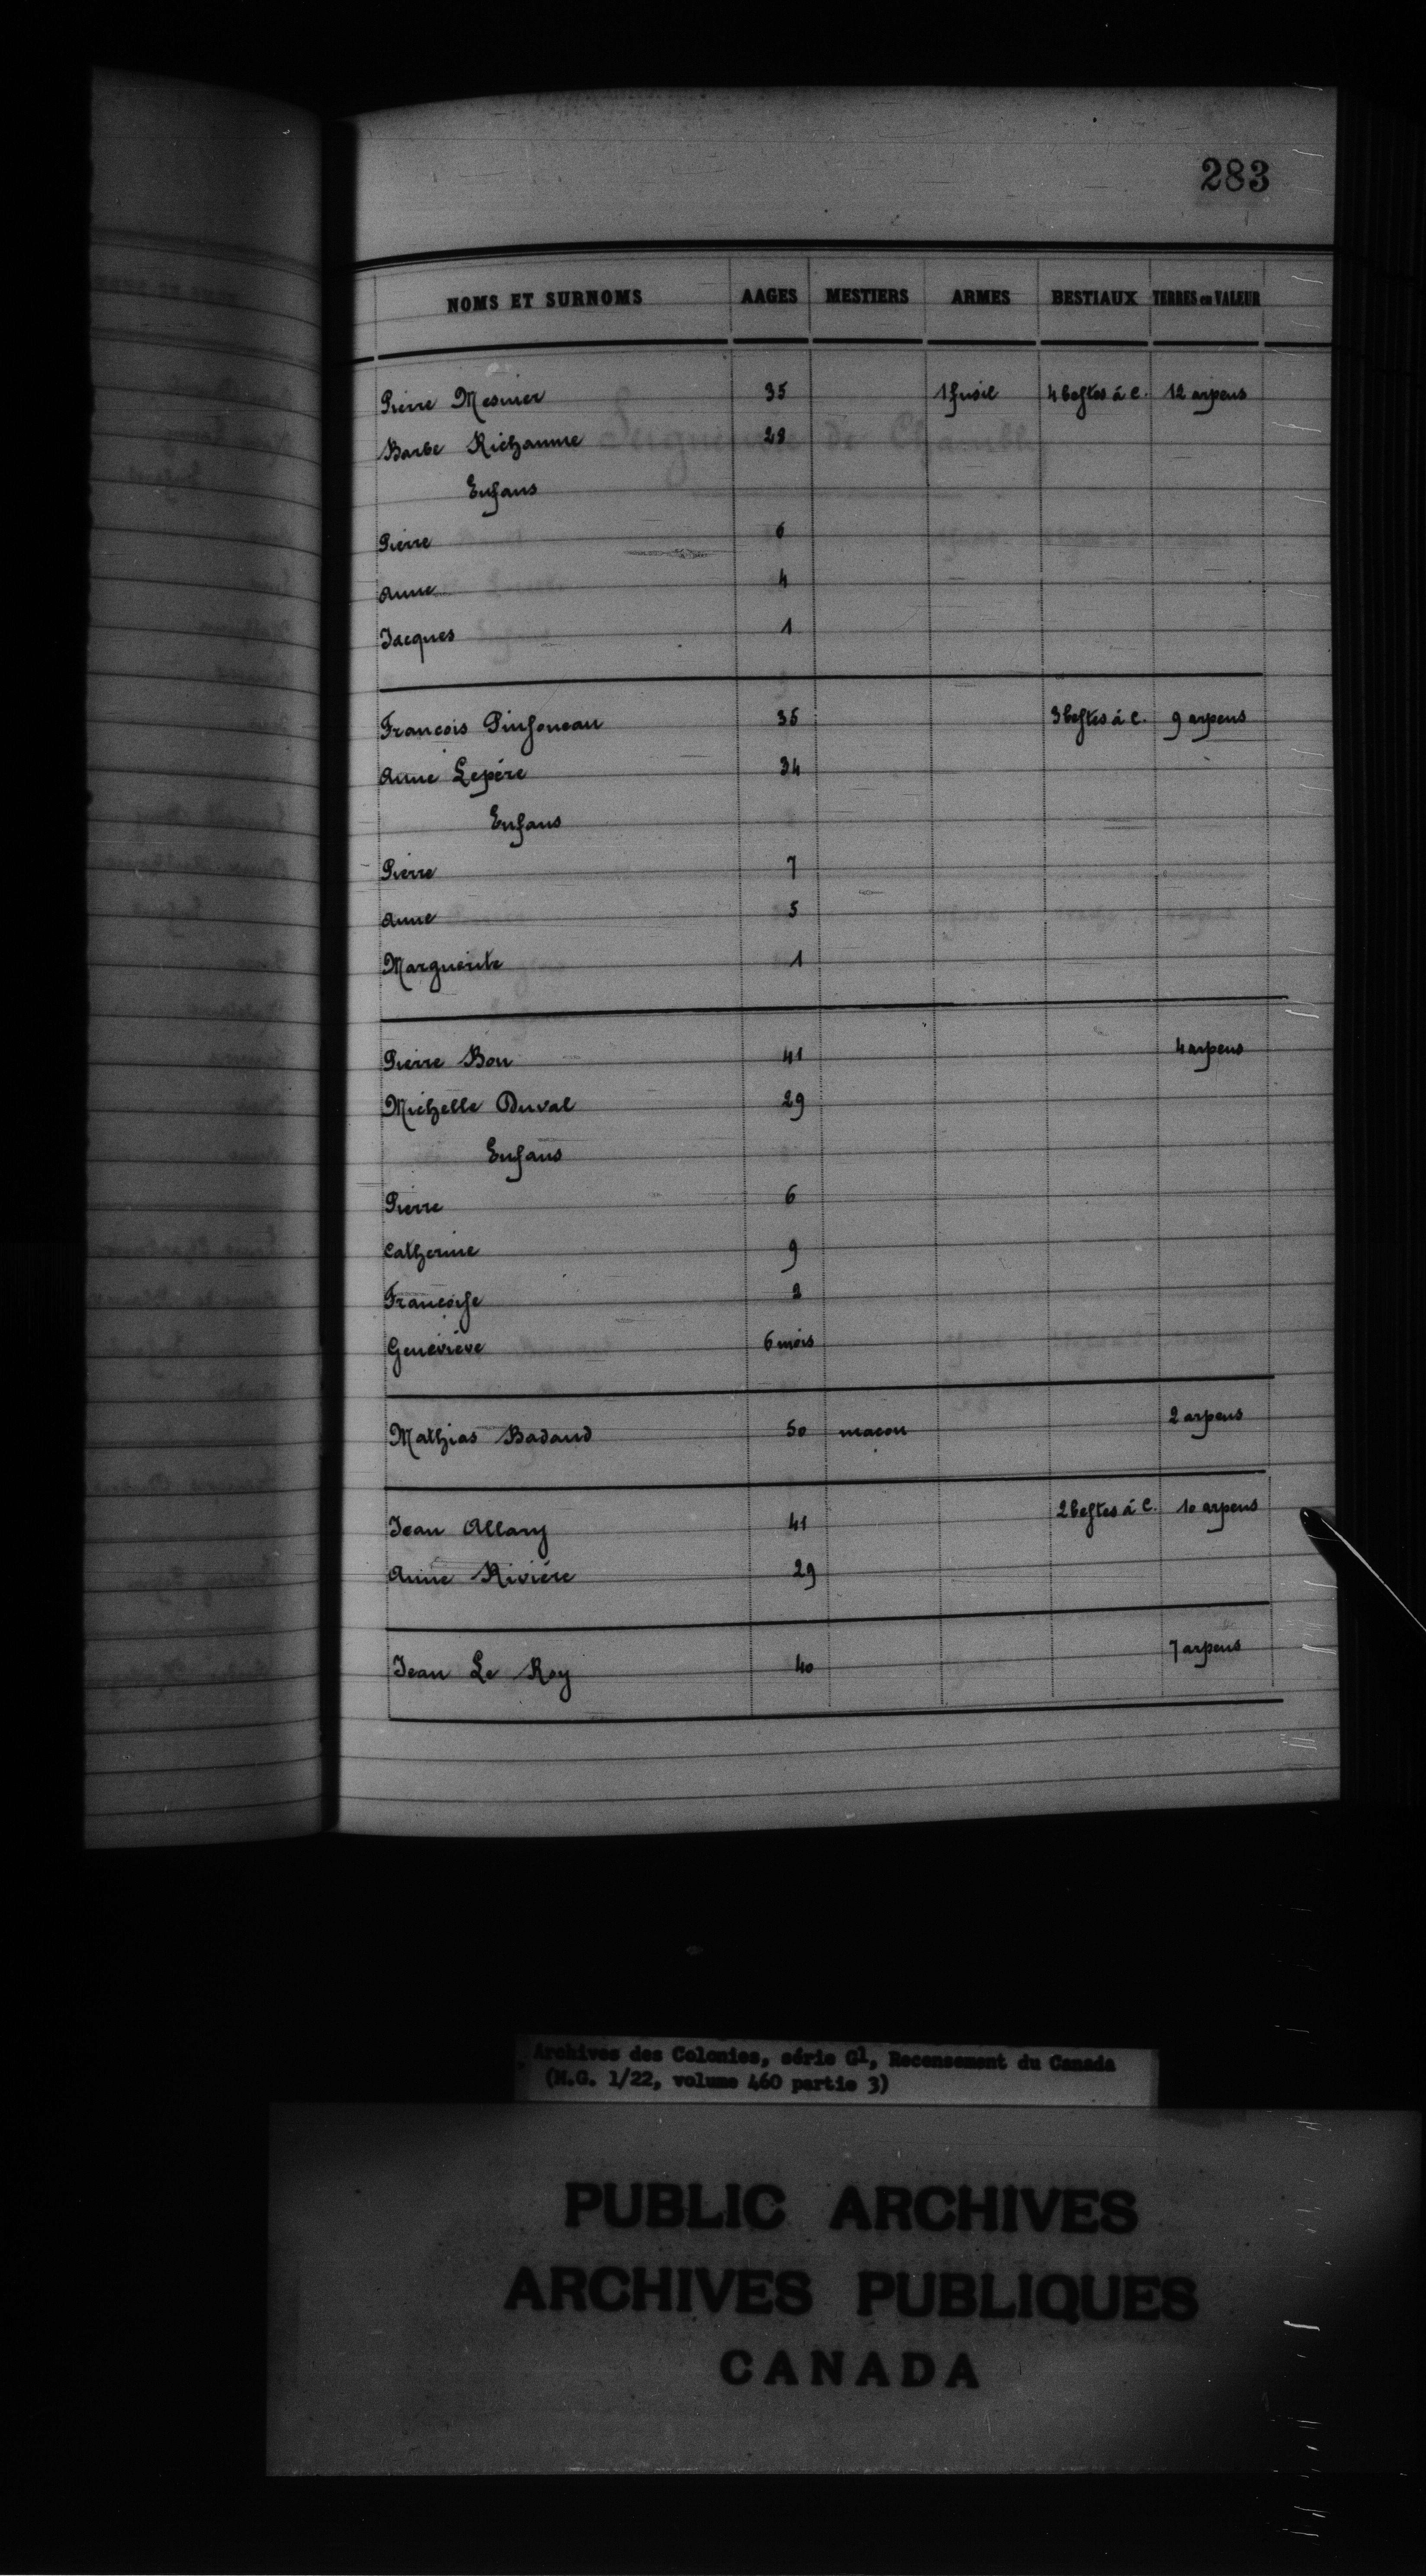 283
NOMS ET SURNOMS AAGES MESTIERS ARMES BESTIAUX TERRES en VALEUR
Pierre Mesnier 35 1 fusil 4 bestes á c. 12 arpens
Barbe Richaume 28
Enfans
Pierre 6
Anne 4
Jacques 1
Francois Pinsoneau 35 3 bestes á c. 9 arpens
Anne Lepére 34
Enfans
Pierre 7
Anne 5
Marguerite 1
Pierre Bon 41 4 arpens
Michelle Duval 29
Enfans
Pierre 6
Catherine 9
Francoise 2
Geneviève 6 mois
Mathias Badaud 50 macon 2 arpens
Jean Allary 41 2 bestes á c. 10 arpens
Anne Riviére 29
Jean Le Roy 40 7 arpens
Archives des Colonies, série G1, Recensement du Canada
(M.G. 1/22, volume 460 partie 3)
PUBLIC ARCHIVES
ARCHIVES PUBLIQUES
CANADA